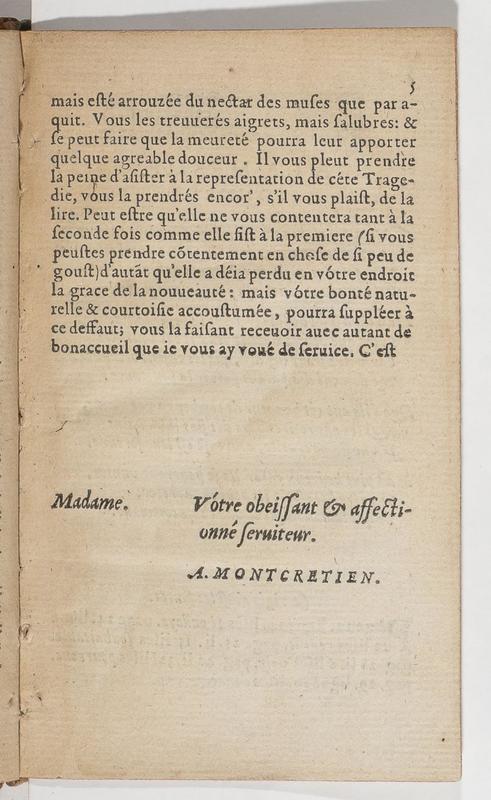 5
mais esté arrouzée du nectar des muses que par a-
quit. Vous les treuuerés aigrets, mais salubres: &
se peut faire que la meureté pourra leur apporter
quelque agreable douceur. Il vous pleut prendre
la peine d'asister à la representation de céte Trage-
die, vous la prendrés encor', s'il vous plaist, de la
lire. Peut estre qu'elle ne vous contentera tant à la
seconde fois comme elle fist à la premiere (si vous
peustes prendre cōtentement en chose de si peu de
goust) d'autāt qu'elle a déia perdu en vótre endroit
la grace de la nouueauté: mais vótre bonté natu-
relle & courtoisie accoustumée, pourra suppléer à
ce deffaut; vous la faisant receuoir auec autant de
bonaccueil que ie vous ay voué de seruice. C'est
Madame. Vótre obeissant & affecti-
onné seruiteur.
A. MONTCRETIEN.